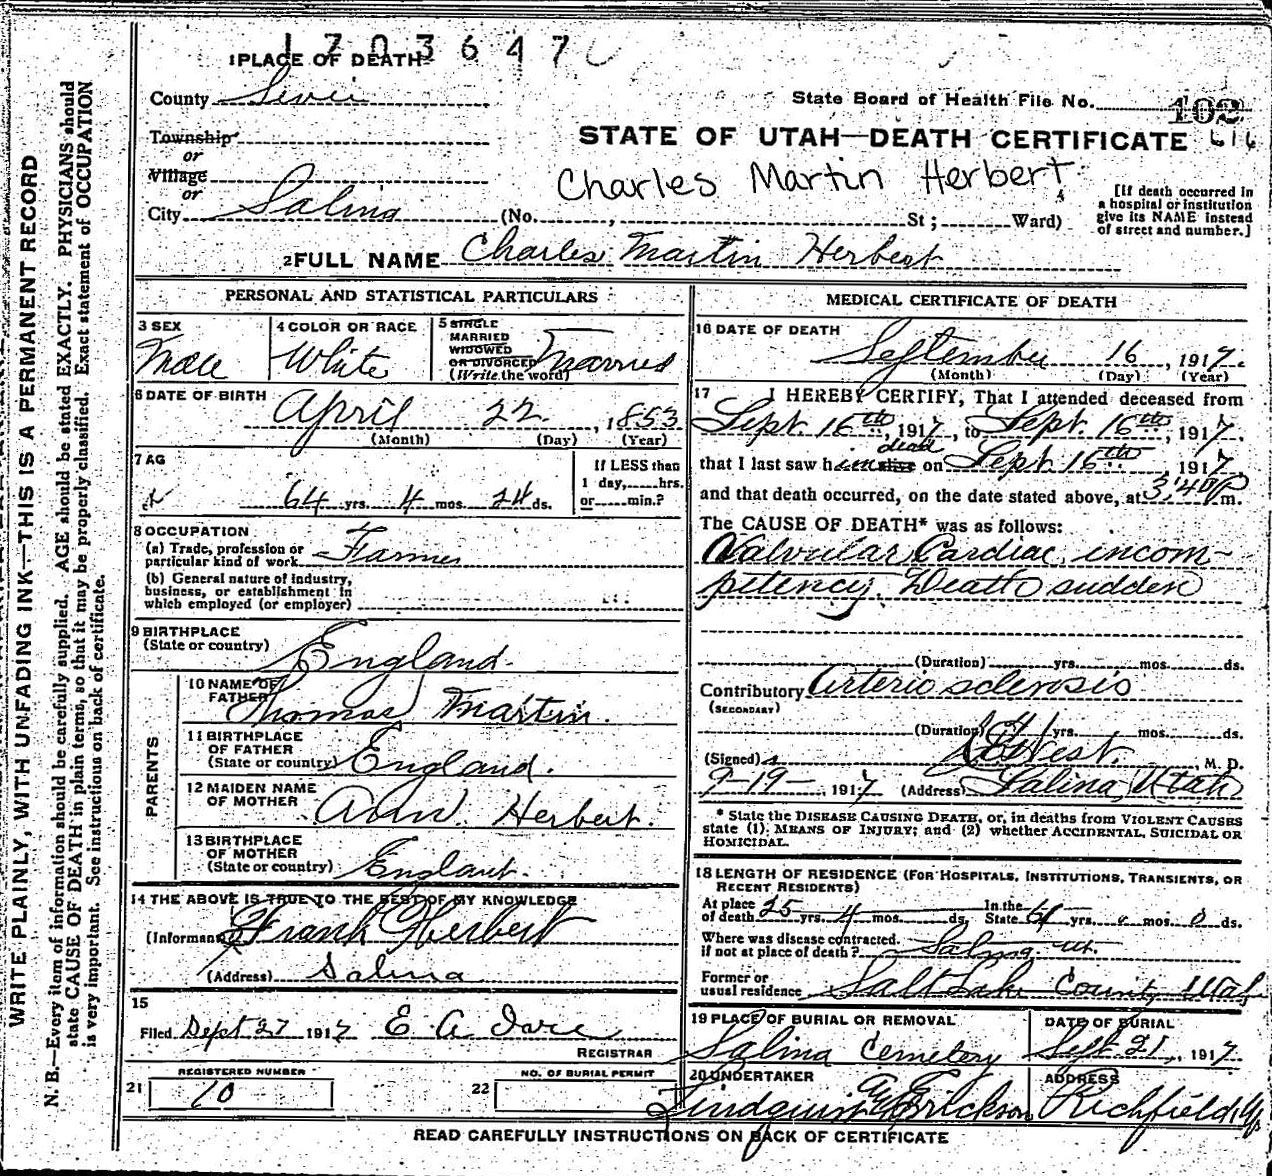 1703647
1 PLACE OF DEATH
County Sevier
State Board of Health File No. 102
Township
or
STATE OF UTAH—DEATH CERTIFICATE 616
Village
or
Charles Martin Herbert
City Salina (No. , St ; Ward)
[If death occurred in
a hospital or institution
give its NAME instead
of street and number.]
2 FULL NAME Charles Martin Herbert
PERSONAL AND STATISTICAL PARTICULARS
3 SEX
Male
4 COLOR OR RACE
White
5 SINGLE
MARRIED
WIDOWED
OR DIVORCED
(Write the word)
Married
6 DATE OF BIRTH
April 22, 1853
(Month) (Day) (Year)
7 AG
64 yrs. 4 mos. 24 ds.
If LESS than
1 day, hrs.
or min.?
8 OCCUPATION
(a) Trade, profession or
particular kind of work Farmer
(b) General nature of industry,
business, or establishment in
which employed (or employer)
9 BIRTHPLACE
(State or country) England.
PARENTS
10 NAME OF
FATHER Thomas Martin.
11 BIRTHPLACE
OF FATHER
(State or country) England.
12 MAIDEN NAME
OF MOTHER Ann Herbert.
13 BIRTHPLACE
OF MOTHER
(State or country) England.
14 THE ABOVE IS TRUE TO THE BEST OF MY KNOWLEDGE
(Informant) Frank Herbert
(Address) Salina
15
Filed Sept 27 1917 E. A.
REGISTRAR
REGISTERED NUMBER
21 10
NO. OF BURIAL PERMIT
22
MEDICAL CERTIFICATE OF DEATH
16 DATE OF DEATH
September 16, 1917.
(Month) (Day) (Year)
17 I HEREBY CERTIFY, That I attended deceased from
Sept. 16th, 1917, to Sept. 16th, 1917.
dead
that I last saw him alive on Sept 16th, 1917,
and that death occurred, on the date stated above, at 3:40 P m.
The CAUSE OF DEATH* was as follows:
Valvular Cardiac incom-
petency. Death sudden
(Duration) yrs. mos. ds.
Contributory Arterio sclerosis
(SECONDARY)
(Duration) yrs. mos. ds.
(Signed) West. M. D.
9-19- 1917 (Address) Salina, Utah
* State the DISEASE CAUSING DEATH, or, in deaths from VIOLENT CAUSES
state (1) MEANS OF INJURY; and (2) whether ACCIDENTAL, SUICIDAL OR
HOMICIDAL.
18 LENGTH OF RESIDENCE (FOR HOSPITALS, INSTITUTIONS, TRANSIENTS, OR
RECENT RESIDENTS)
At place
of death 25 yrs. 4 mos. ds. In the State 61 yrs. mos. 0 ds.
Where was disease contracted.
if not at place of death? Salina. Ut.
Former or
usual residence Salt Lake County Utah
19 PLACE OF BURIAL OR REMOVAL
Salina Cemetery
DATE OF BURIAL
Sept 21, 1917.
20 UNDERTAKER
Lindquist Erickson
ADDRESS
Richfield, U
READ CAREFULLY INSTRUCTIONS ON BACK OF CERTIFICATE
WRITE PLAINLY, WITH UNFADING INK—THIS IS A PERMANENT RECORD
N. B.—Every item of information should be carefully supplied. AGE should be stated EXACTLY. PHYSICIANS should
state CAUSE OF DEATH in plain terms, so that it may be properly classified. Exact statement of OCCUPATION
is very important. See instructions on back of certificate.